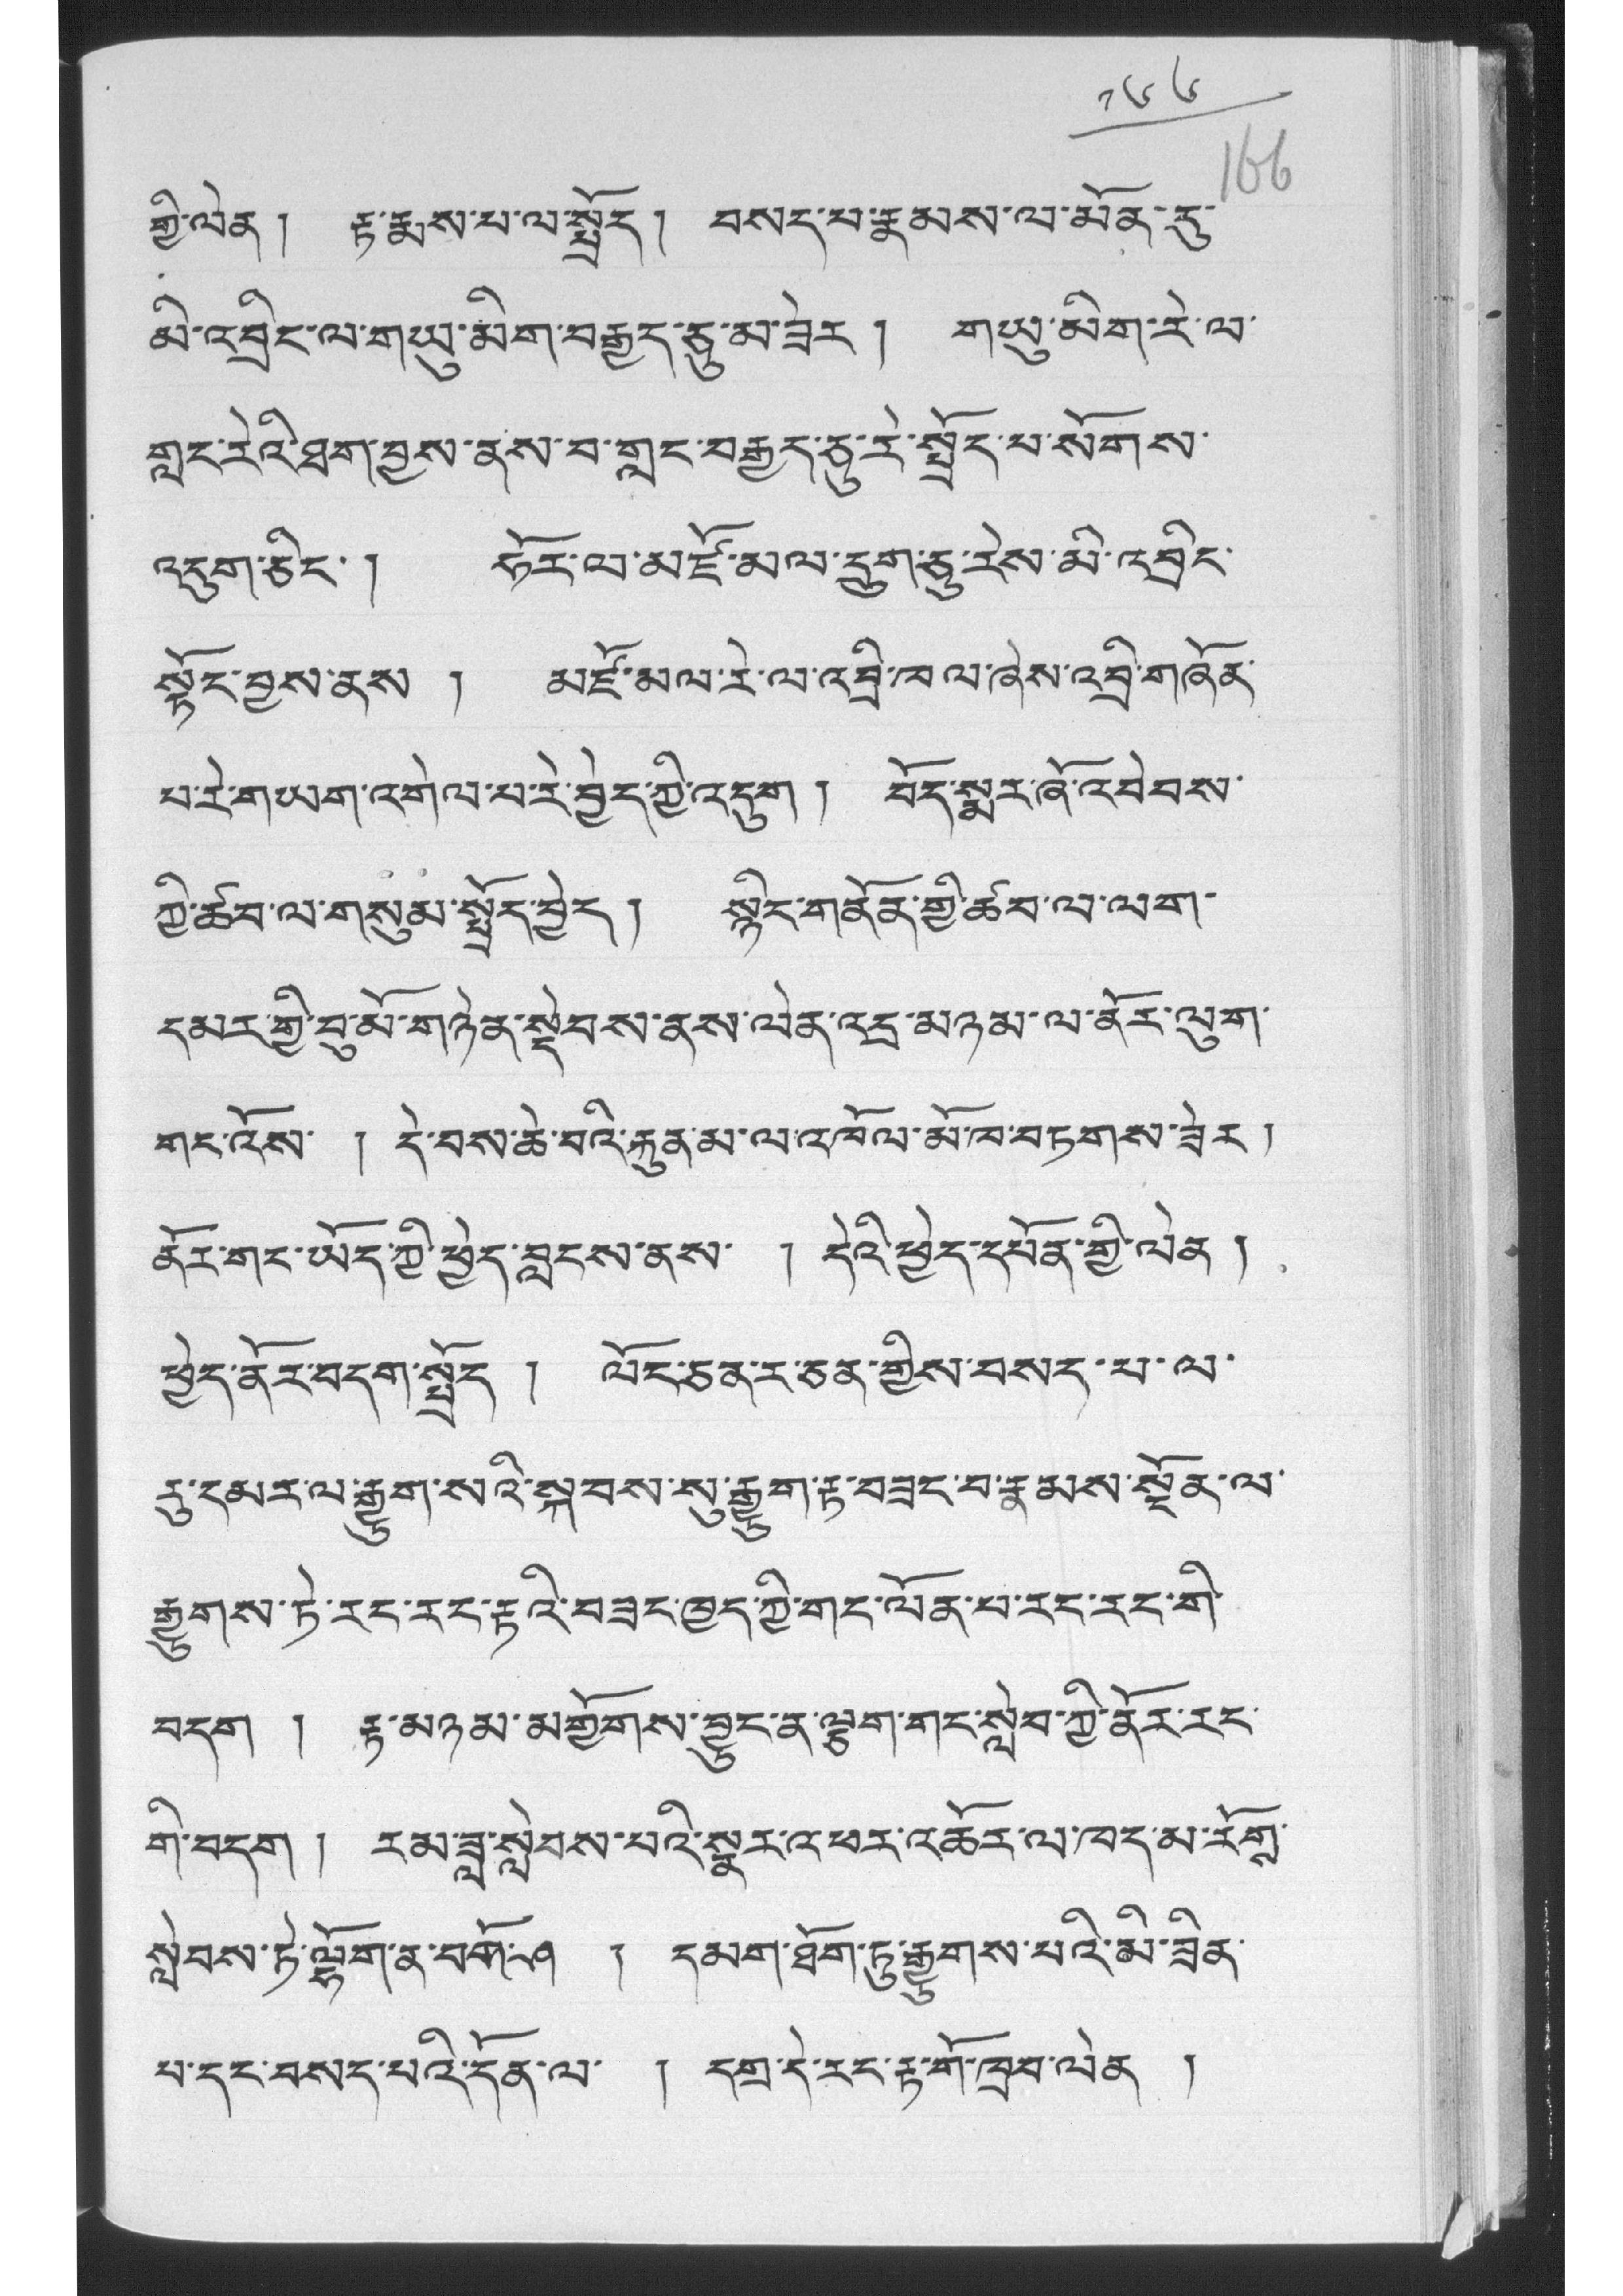 ༡༦༦
166
གྱི་ལེན། རྟ་རྨས་པ་ལ་སྤྲོད། བསད་པ་རྣམས་ལ་མོན་དུ་
མི་འབྲིང་ལ་གཡུ་མིག་བརྒྱད་ཅུ་མ་ཟེར། གཡུ་མིག་རེ་ལ་
གླང་རེའི་ཐག་བྱས་ནས་བ་གླང་བརྒྱད་ཅུ་རེ་སྤྲོད་པ་སོགས་
འདུག་ཅིང་། ཧོར་ལ་མཛོ་མལ་དྲུག་ཅུ་རེས་མི་འབྲིང་
སྟོང་བྱས་ནས། མཛོ་མལ་རེ་ལ་འབྲི་ཁལ་ཞེས་འབྲི་གཞོན་
པ་རེ་གཡག་འགེལ་པ་རེ་བྱེད་ཀྱི་འདུག། བོད་སྨར་ཞོ་འབེབས་
ཀྱི་ཚབ་ལ་གསུམ་སྤྲོད་བྱེད། སྙིང་གནོན་གྱི་ཚབ་ལ་ལག་
དམར་གྱི་བུ་མོ་གཉེན་སྡེབས་ནས་ལེན་འདྲ་མཉམ་ལ་ནོར་ལུག་
གང་འོས། དེ་བས་ཆེ་བའི་རྐུན་མ་ལ་འཁོལ་མོ་ཁ་བཏགས་ཟེར།
ནོར་གང་ཡོད་ཀྱི་ཕྱེད་བླངས་ནས། དེའི་ཕྱེད་དཔོན་གྱི་ལེན།
ཕྱེད་ནོར་བདག་སྤྲོད། ལོང་ཅན་ར་ཅན་གྱིས་བསད་པ་ལ་
རུ་དམར་ལ་རྒྱུག་སའི་སྐབས་སུ་རྒྱུག་རྟ་བཟང་བ་རྣམས་སྔོན་ལ་
རྒྱུགས་ཏེ་རང་རང་རྟའི་བཟང་ཁྱད་ཀྱི་གང་ལོན་པ་རང་རང་གི་
བདག། རྟ་མཉམ་མགྱོགས་བྱུང་ན་ལྕག་གང་སླེབ་ཀྱི་ནོར་རང་
གི་བདག། རམ་ཟླ་སླེབས་པའི་སྔར་འཕར་འཆོར་ལ་ཁད་མ་རོགླ་
སླེབས་ཏེ་ལྷོག་ན་བགོ་ཤ། དམག་ཐོག་ཏུ་རྒྱུགས་པའི་མི་ཟིན་
པ་དང་བསད་པའི་དོན་ལ། དགྲ་དེ་རང་རྟ་གོ་ཁྲབ་ལེན།